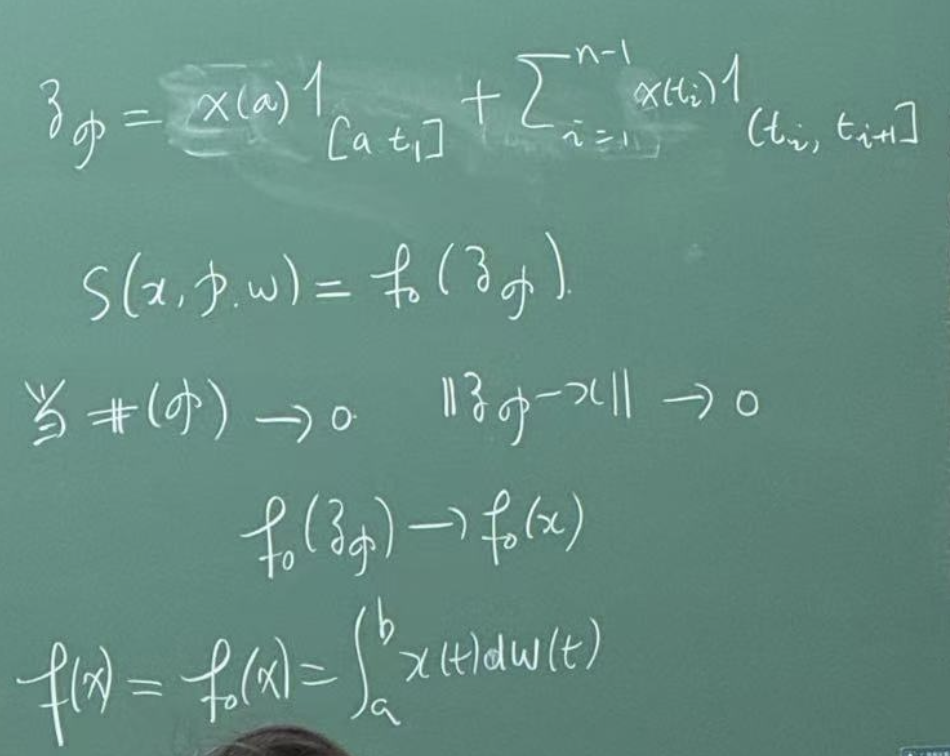 𝔷_𝔭 = x(a) 1_{[a t_1]} + ∑_{i=1}^{n-1} x(t_i) 1_{(t_i, t_{i+1}]}
S(x, p. w) = f_0(𝔷_𝔭).
当 #(𝔭) → 0 ‖𝔷_𝔭 - x‖ → 0
f_0(𝔷_𝔭) → f_0(x)
f(x) = f_0(x) = ∫_a^b x(t) dw(t)